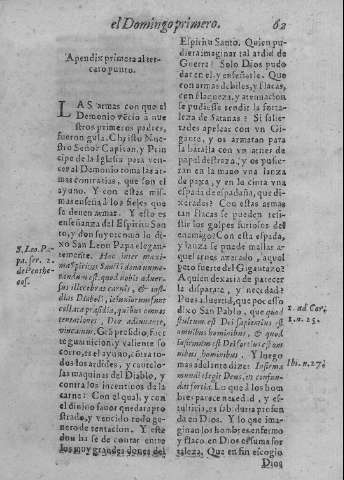 el Domingo primero. 62
Apendix primera al ter-
cero punto.
LAS armas con que el
Demonio vēcio à nue
stros primeros padres,
fueron gula. Christo Nue-
stro Señor Capitan, y Prin
cipe de la Iglesia para ven-
cer al Demonio toma las ar
mas contrarias, que son el
ayuno. Y con estas mis-
mas enseña à los fieles que
se deuen armar. Y esto es
enseñança del Espiritu San
to, y don suyo como lo di-
xo San Leon Papa elegan-
temente. Hoc inter maxi-
ma Spiritus Sancti dona nume-
randum est, quod nobis aduer-
sus illecebras carnis, & insi-
dias Diaboli, ieiuniorum sunt
collata præsidia, quibus omnes
tentationes, Deo adiuuante,
vincamus. Grā presidio, fuer
te guarnicion, y valiente so
corro, es el ayuno, cōtra to-
dos los ardides, y cautelo-
sas maquinas del Diablo, y
contra los incentiuos de la
carne: Con el qual, y con
el diuino fauor quedara pro
strado, y vencido todo gu-
nero de tentacion. Y este
don ha se de contar entre
los muy grandes dones del
S. Leo. Pa-
pa. ser. 2.
de Penthe-
cos.
Espiritu Santo. Quien pu-
diera imaginar tal ardid de
Guerra? Solo Dios pudo
dar en el, y enseñarle. Que
con armas debiles, y flacas,
con flaqueza, y atenuacion
se pudiesse rendir la forta-
leza de Satanas? Si salie-
rades apelear con vn Gi-
gante, y os armatan para
la batalla con vn arnes de
papel destraza, y os pusie-
ran en la mano vna lanza
de paxa, y en la cinta vna
espada de espadaña, que di-
xerades? Con estas armas
tan flacas se pueden resis-
tir los golpes furiosos del
enemigo? Con esta espada,
y lanza se puede mallar a-
quel arnes azerado, aquel
peto fuerte del Gigantazo?
A quien dexaria de parecer
la disparate, y necedad?
Pues aduertid, que por esso
dixo San Pablo, que quod
stultum est Dei sapientius est
omnibus hominibus, & quod
infirmum est Dei fortius est om
nibus hominibus. Y luego
mas adelante dize: Infirma
mundi elegit Deus, vt confun-
dat fortia. Lo que à los hom
bres parece necedad, y es-
tulticia, es sabiduria presenta
da en Dios. Y lo que ima-
ginan los hombres enfermo
y flaco, en Dios es suma for
taleza. Que en fin escogio
1. ad Cor.
1. n. 25.
Ibi. n. 27.
Dios